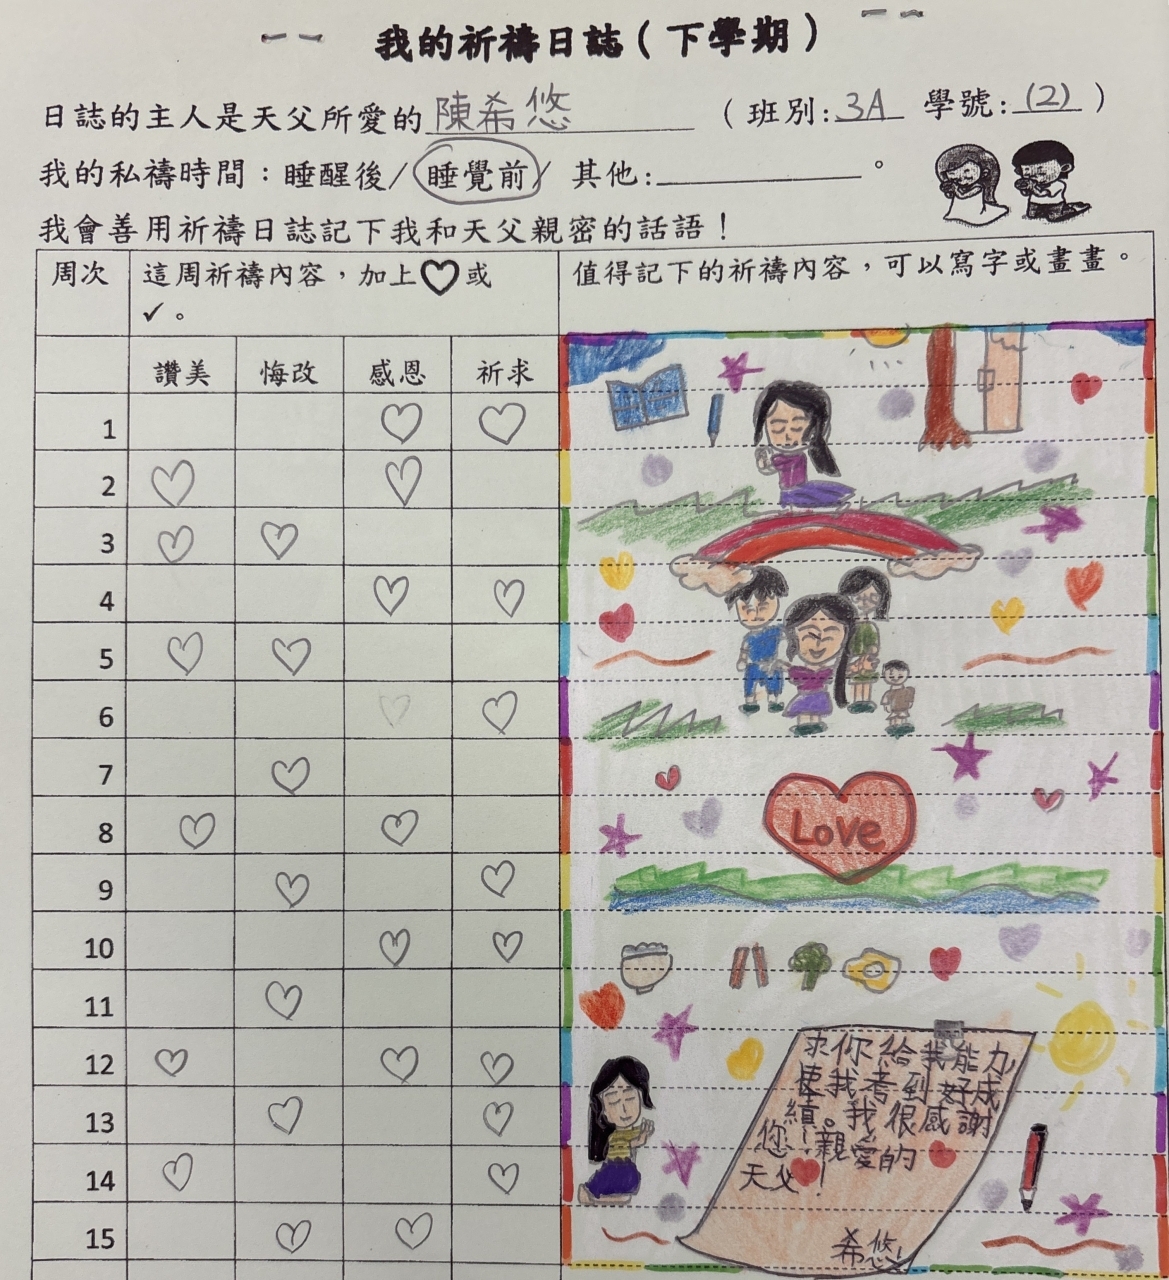 我的祈禱日誌（下學期）
日誌的主人是天父所愛的 陳希悠 （班別:3A 學號:(2)）
我的私禱時間：睡醒後/睡覺前/ 其他:__________。
我會善用祈禱日誌記下我和天父親密的話語！
周次 這周祈禱內容，加上♡或 值得記下的祈禱內容，可以寫字或畫畫。
✓。
讚美 悔改 感恩 祈求
1
2
3
4
5
6
7
8
Love
9
10
11
12
13
14
15
求你給我能力
使我考到好成
績。我很感謝
您！親愛的
天父！
希悠!